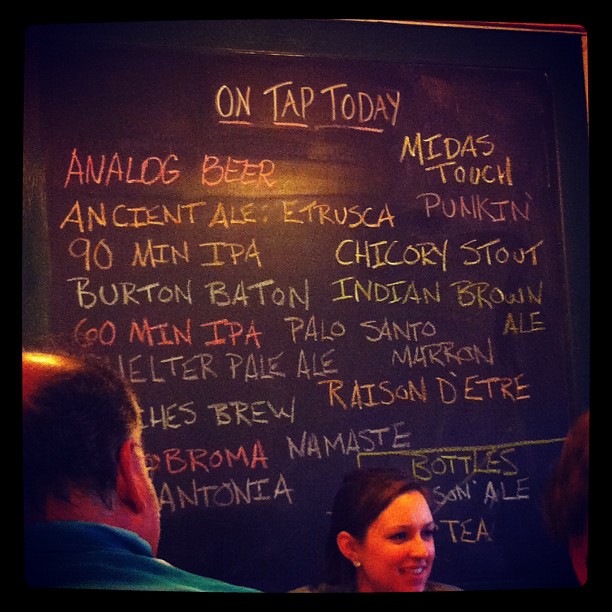 ON TAP TODAY
ANALOG BEER
ANCIENT ALE: ETRUSCA
90 MIN IPA
BURTON BATON
60 MIN IPA
SHELTER PALE ALE
CHES BREW
OBROMA
ANTONIA
MIDAS
TOUCH
PUNKIN'
CHICORY STOUT
INDIAN BROWN
ALE
PALO SANTO
MARRON
RAISON D'ETRE
NAMASTE
BOTTLES
SON' ALE
TEA